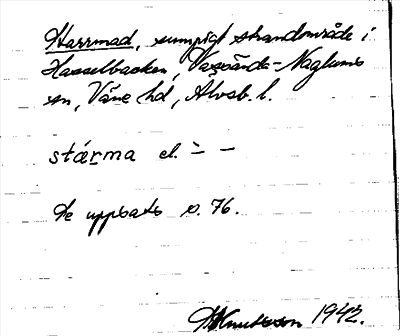 Starrmad, sumpigt strandområde i
Hasselbacken, Vassända-Naglums
sn, Väne hd, Älvsb. l.
stárma el. ∸ –
Se uppsats s. 76.
Knutsson 1942.